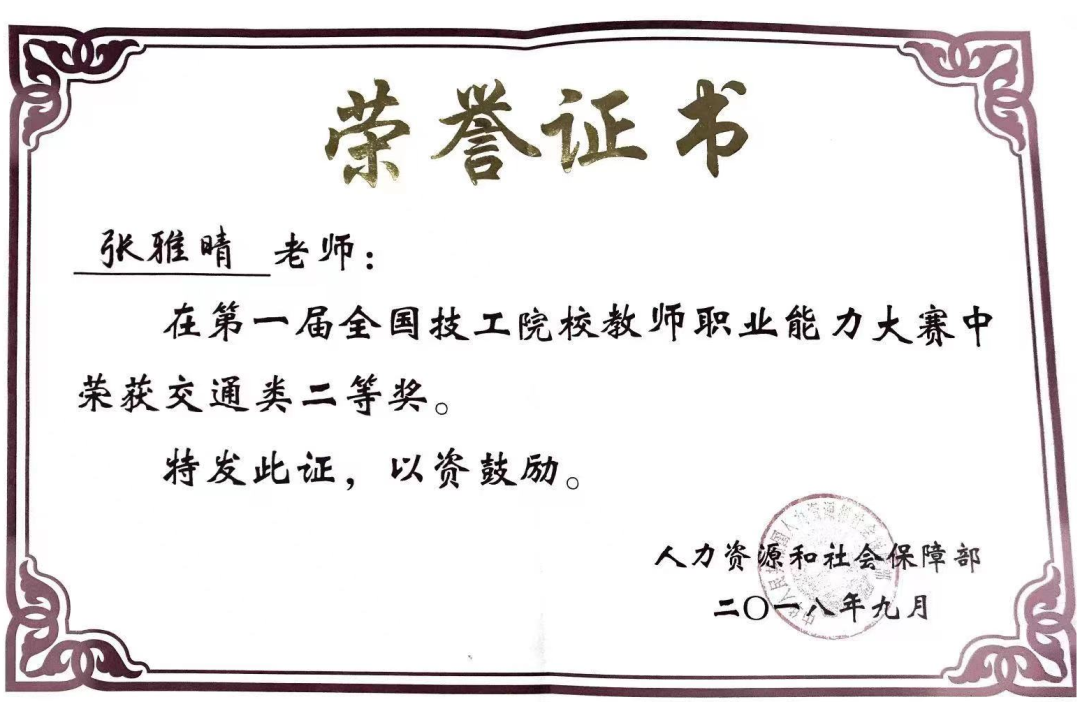 荣誉证书
张雅晴 老师：
在第一届全国技工院校教师职业能力大赛中
荣获交通类二等奖。
特发此证，以资鼓励。
人力资源和社会保障部
二〇一八年九月